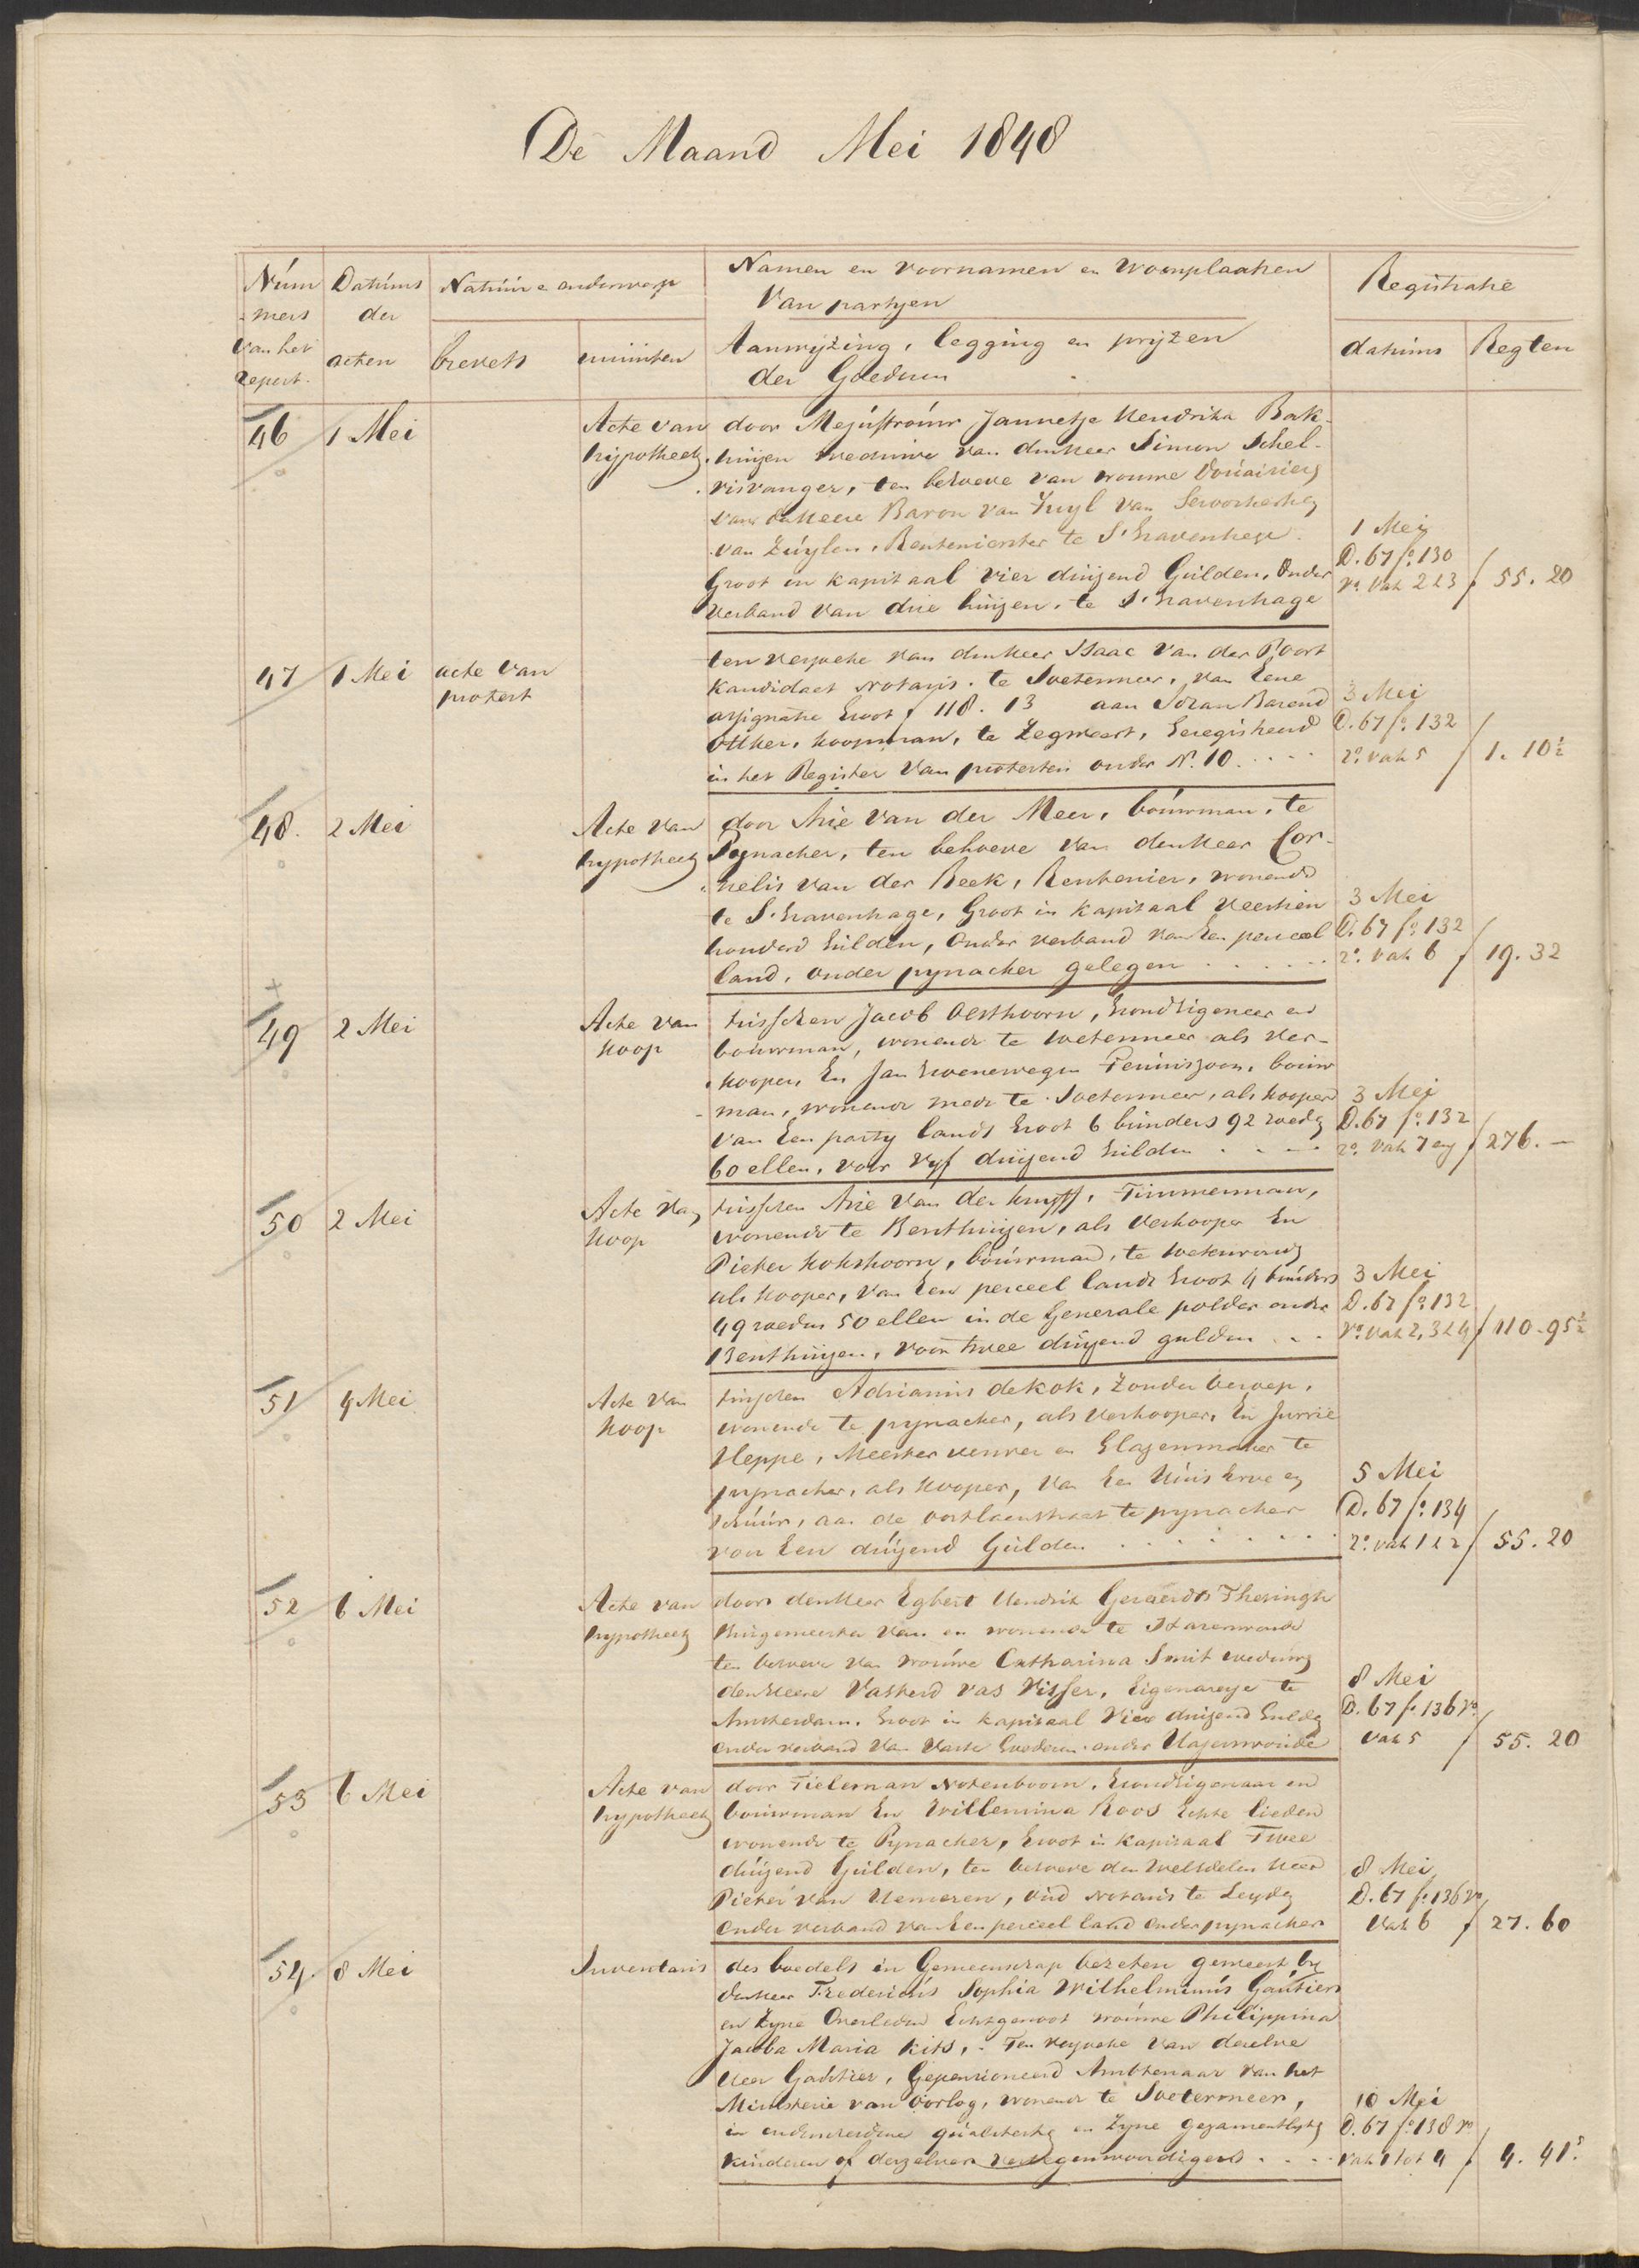 De Maand Mei 1848
Núm Datúms Natúúr e onderwerp Namen en voornamen en Woonplaatsen Registratie
mers der Van partyen
van het acten brevets minúten Aanwyzing, legging en pryzen datúms Regten
Repert. der Goederen
46 1 Mei Acte van door Mejúffroúw Jannetje Hendrika Bak-
hypotheek húizen wedúwe van den Heer Simon Schel-
visvanger, ten behoeve van vrouwe Doúairiere
van den Heere Baron van Tuyl van Serooskerke
van Zúylen, Rentenierster te S'Gravenhage 1 Mei
Groot in kapitaal vier duizend Gúlden, Onder D. 67 fo. 130
verband van drie húizen te S'Gravenhage Vo. Vak 2 & 3 f 55. 20
47 1 Mei acte van ten verzoeke van den Heer Isaac Van der Poort
protest kandidaat Notaris te Soetermeer, van Eene
assignatie Groot f 118. 13 aan Johan Barend 3 Mei
Otther, koopman, te Zegwaart, Geregistreerd D. 67 fo. 132
in het Register Van protesten onder No. 10 . . . . ro. vak 5 f 1. 10½
48. 2 Mei Acte van door Arie van der Meer, boúwman, te
hypotheek Pynacker, ten behoeve van den Heer Cor-
nelis van der Beek, Rentenier, wonende
te S'Gravenhage, Groot in kapitaal Veertien 3 Mei
honderd Gúlden, Onder verband van Een perceel D. 67 fo. 132
land, onder pynacker gelegen . . . . . . ro. vak 6 f 19. 32
49 2 Mei Acte van tússchen Jacob Oosthoorn, Grondeigenaar en
Koop boúwman, wonende te Soetermeer als Ver-
kooper, En Jan Groenewegen Teúniszoon, boúw
man, wonende mede te Soetermeer, als kooper 3 Mei
van Een party lands Groot 6 bunders 92 roede D. 67 fo. 132
60 ellen, voor Vyf duizend Gúlden . . . . ro. vak 7 en f 276. —
50 2 Mei Acte van tússchen Arie van der Kruyff, Timmerman,
Koop wonende te Benthúizen, als Verkooper En
Pieter Kokshoorn, boúwman, te
als Kooper, van Een perceel lands Groot 4 búnders 3 Mei
49 roeden 50 ellen in de Generale polder onder D. 67 fo. 132
Benthúizen, voor twee dúizend gulden . . . Vo. vak 2, 3 & 4 f 110. 95½
51 4 Mei Acte van tússchen Adrianús de Kok, Zonder beroep,
Koop wonende te pynacker, als Verkooper, En Jurrie
Heppe, Meester verwer en Glazenmaker te
pynacker, als Kooper, van Een Húis Erve en 5 Mei
schúúr, aan de oostlaenstraat te pynacker D. 67 fo. 134
voor Een dúizend Gúlden . . . . . . . ro. vak 1 & 2 f 55. 20
52 6 Mei Acte van door den Heer Egbert Hendrik Gerardts Thesingh
hypotheek Búrgemeester van en wonende te Hazerswoude
ten behoeve van Vroúwe Catharina Smit wedúwe
den Heere Vastert Vas Visser, Eigenaresse te 8 Mei
Amsterdam, Groot in kapitaal Vier dúizend Gulden D. 67 fo. 136 Vo.
onder verband van Vaste Goederen onder Hazerswoúde vak 5 f 55. 20
53 6 Mei Acte van door Tieleman Notenboom, Grondeigenaar en
hypotheek boúwman En Willemina Roos Echte lieden
wonende te Pynacker, Groot in kapitaal Twee
dúizend Gúlden, ten behoeve den WelEdelen Heer 8 Mei
Pieter van Hemeren, Oúd Notaris te Leyden D. 67 fo. 136 Vo
Onder verband van Een perceel land Onder pynacker Vak 6 f 27. 60
54. 8 Mei Inventaris des boedels in Gemeenschap bezeten geweest by
den Heer Fredericús Sophia Wilhelmús Gaútier
en Zyne Overleden Echtgenoot vroúwe Philippina
Jacoba Maria Kits, Ten verzoeke van dezelve
Heer Gaútier, Gepensioneerd Ambtenaar van het
Ministerie van Oorlog, wonende te Soetermeer, 10 Mei
in onderscheidene qúaliteiten en Zyne gezamentlyke D. 67 fo. 138 Vo
kinderen of derzelver vertegenwoordigers . . . . vak 1 tot 4 f 4. 41⁵